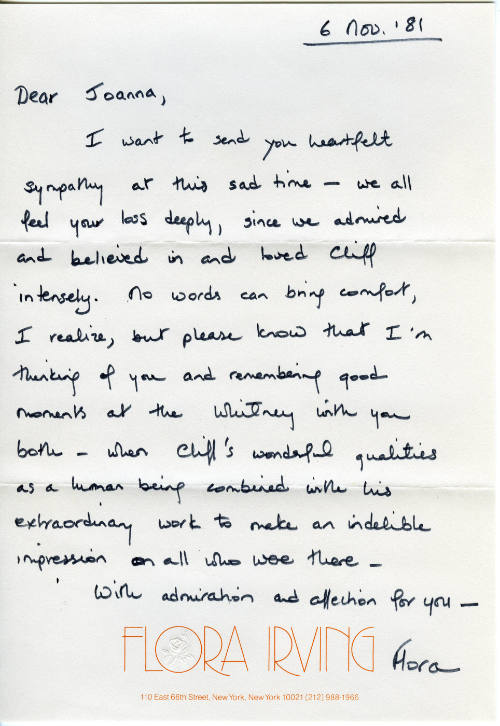 6 Nov. '81
Dear Joanna,
I want to send you heartfelt
sympathy at this sad time – we all
feel your loss deeply, since we admired
and believed in and loved Cliff
intensely. No words can bring comfort,
I realize, but please know that I'm
thinking of you and remembering good
moments at the Whitney with you
both – when Cliff's wonderful qualities
as a human being combined with his
extraordinary work to make an indelible
impression on all who were there –
With admiration and affection for you –
FLORA IRVING Flora
110 East 66th Street, New York, New York 10021 (212) 988-1966